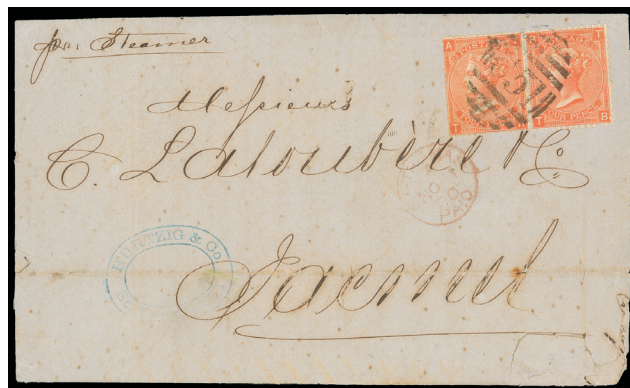 per Steamer
Messieurs
C. Laloubère & Co
Jacmel
HUNTZIG & Co
PAID
A
T
T
B
T
POSTAGE
FOUR PENCE